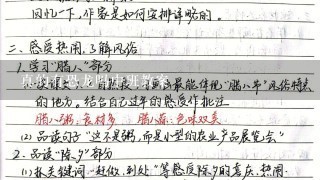 回忆一下,作家是如何安排详略的。
二、感受热闹,了解风俗
1.学习"腊八"部分
最能体现"腊八节"风俗特点
的地方。结合自己过年的感受作批注
腊八粥:食材多 腊八蒜:色味双美
(2)品读句子"这不是粥,而是小型的农业产品展览会"
2.品读"除夕"部分
(1)抓关键词,"赶做、到处"等感受除夕的喜庆、热闹